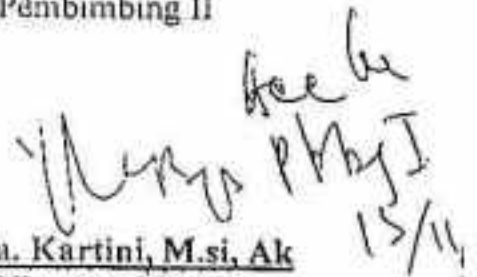 Pembimbing II
Acc ke
Pbbg I
15/11
a. Kartini, M.si, Ak